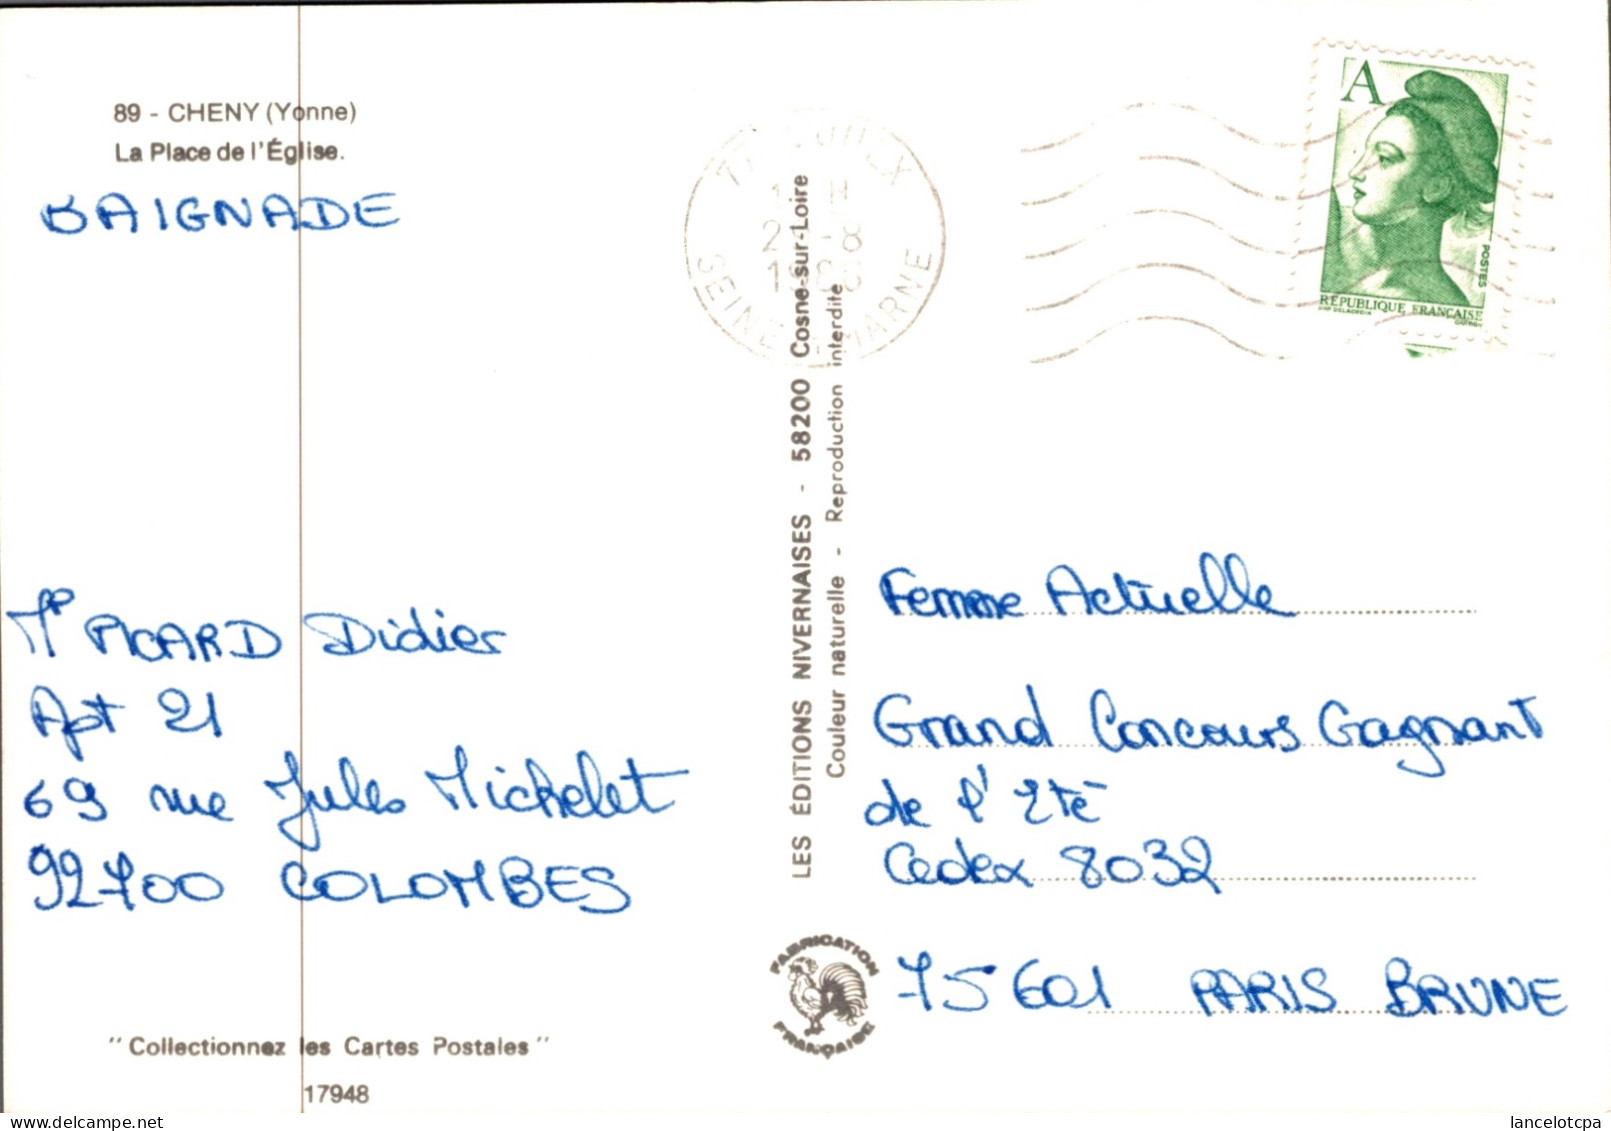 89 - CHENY (Yonne)
La Place de l'Église.
BAIGNADE
Mr PICARD Didier
Apt 21
69 rue Jules Michelet
92700 COLOMBES
"Collectionnez les Cartes Postales"
17948
LES ÉDITIONS NIVERNAISES - 58200 Cosne-sur-Loire
Couleur naturelle - Reproduction interdite
FABRICATION
FRANÇAISE
SEINE MARNE
A
POSTES
RÉPUBLIQUE FRANÇAISE
Femme Actuelle
Grand Concours Gagnant
de l'Eté
Cedex 8032
75601 PARIS BRUNE
lancelotcpa